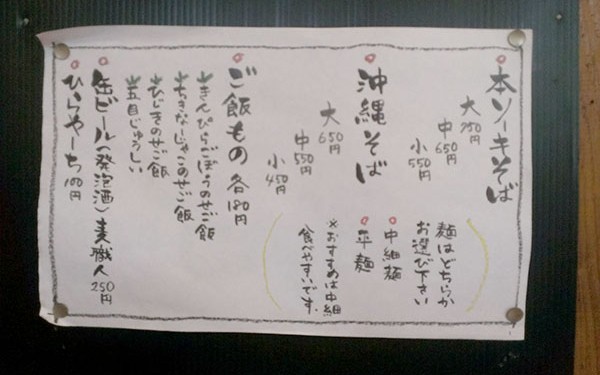 本ソーキそば
大 750円
中 650円
小 550円
麺はどちらか
お選び下さい
中細麺
平麺
※おすすめは中細
食べやすいです。
沖縄そば
大 650円
中 550円
小 450円
ご飯もの 各180円
きんぴらごぼうのせご飯
ちきなーじゃこのせご飯
ひじきのせご飯
五目じゅうしい
缶ビール(発泡酒)麦職人 250円
ひらやーち 100円